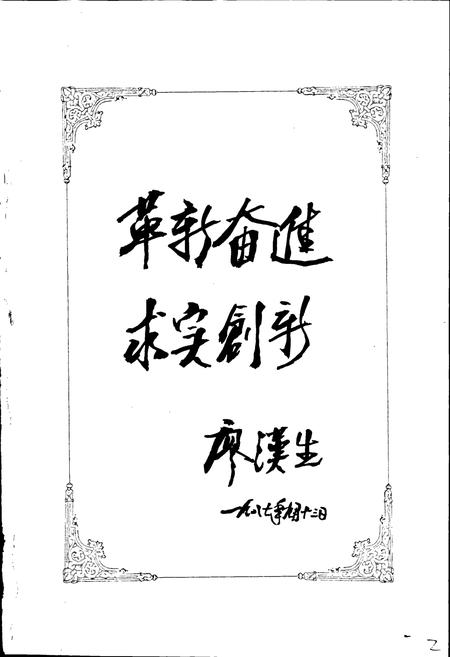 革新奋進
求实創新
廖漢生
一九八七年九月十三日
2